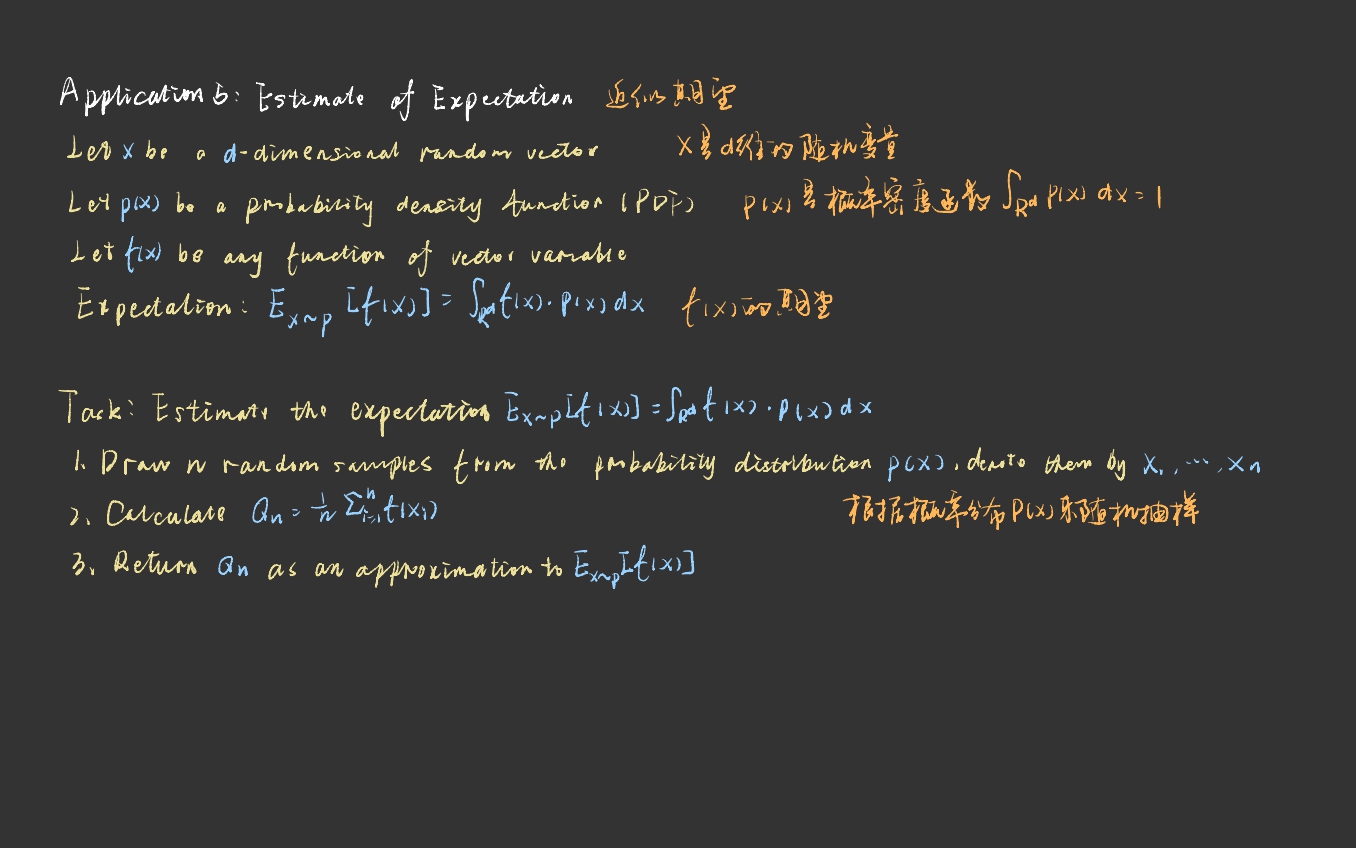 Application 5: Estimate of Expectation 近似期望
Let X be a d-dimensional random vector X是d维的随机变量
Let p(x) be a probability density function (PDF) p(x)是概率密度函数 ∫_{R^d} p(x) dx = 1
Let f(x) be any function of vector variable
Expectation: E_{x~p} [f(x)] = ∫_{R^d} f(x) · p(x) dx f(x)的期望
Task: Estimate the expectation E_{x~p}[f(x)] = ∫_{R^d} f(x) · p(x) dx
1. Draw n random samples from the probability distribution p(x), denote them by X₁, ···, Xn
2. Calculate Qn = 1/n Σ_{i=1}^{n} f(xi)
根据概率分布p(x)来随机抽样
3. Return Qn as an approximation to E_{x~p}[f(x)]